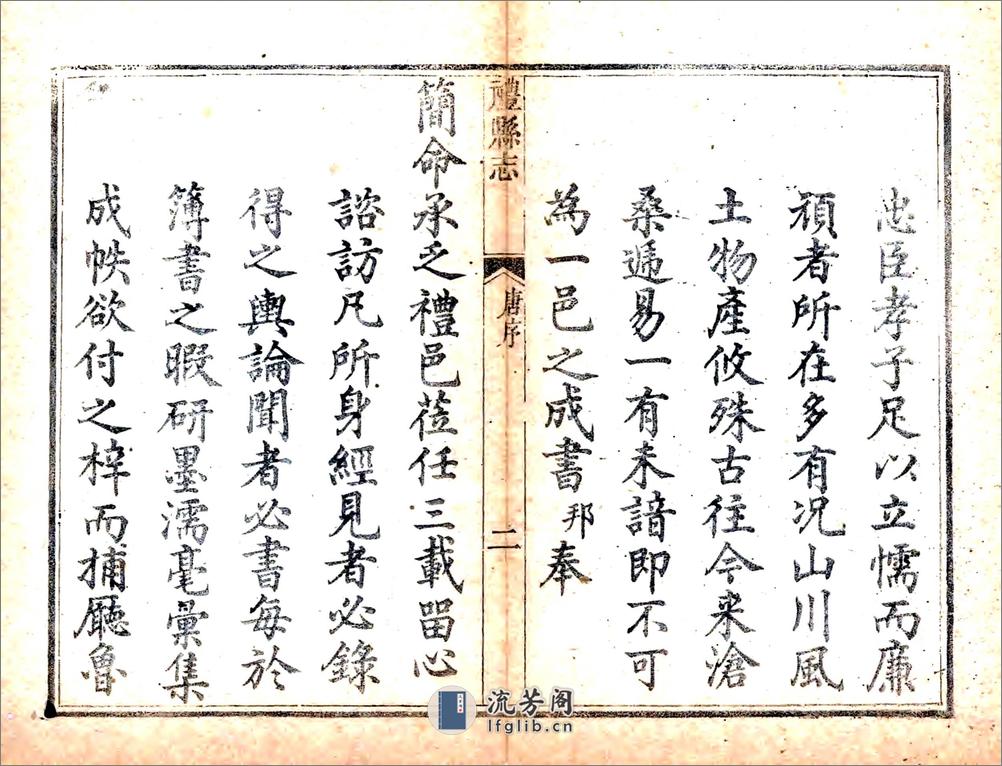 忠臣孝子足以立懦而廉
頑者所在多有况山川風
土物產攸殊古往今来滄
桑遞易一有未諳即不可
為一邑之成書邦奉
禮縣志
唐序
二
簡命承乏禮邑蒞任三載畱心
諮訪凡所身經見者必錄
得之輿論聞者必書每於
簿書之暇研墨濡毫彙集
成帙欲付之梓而捕廳魯
流芳阁
lfglib.cn